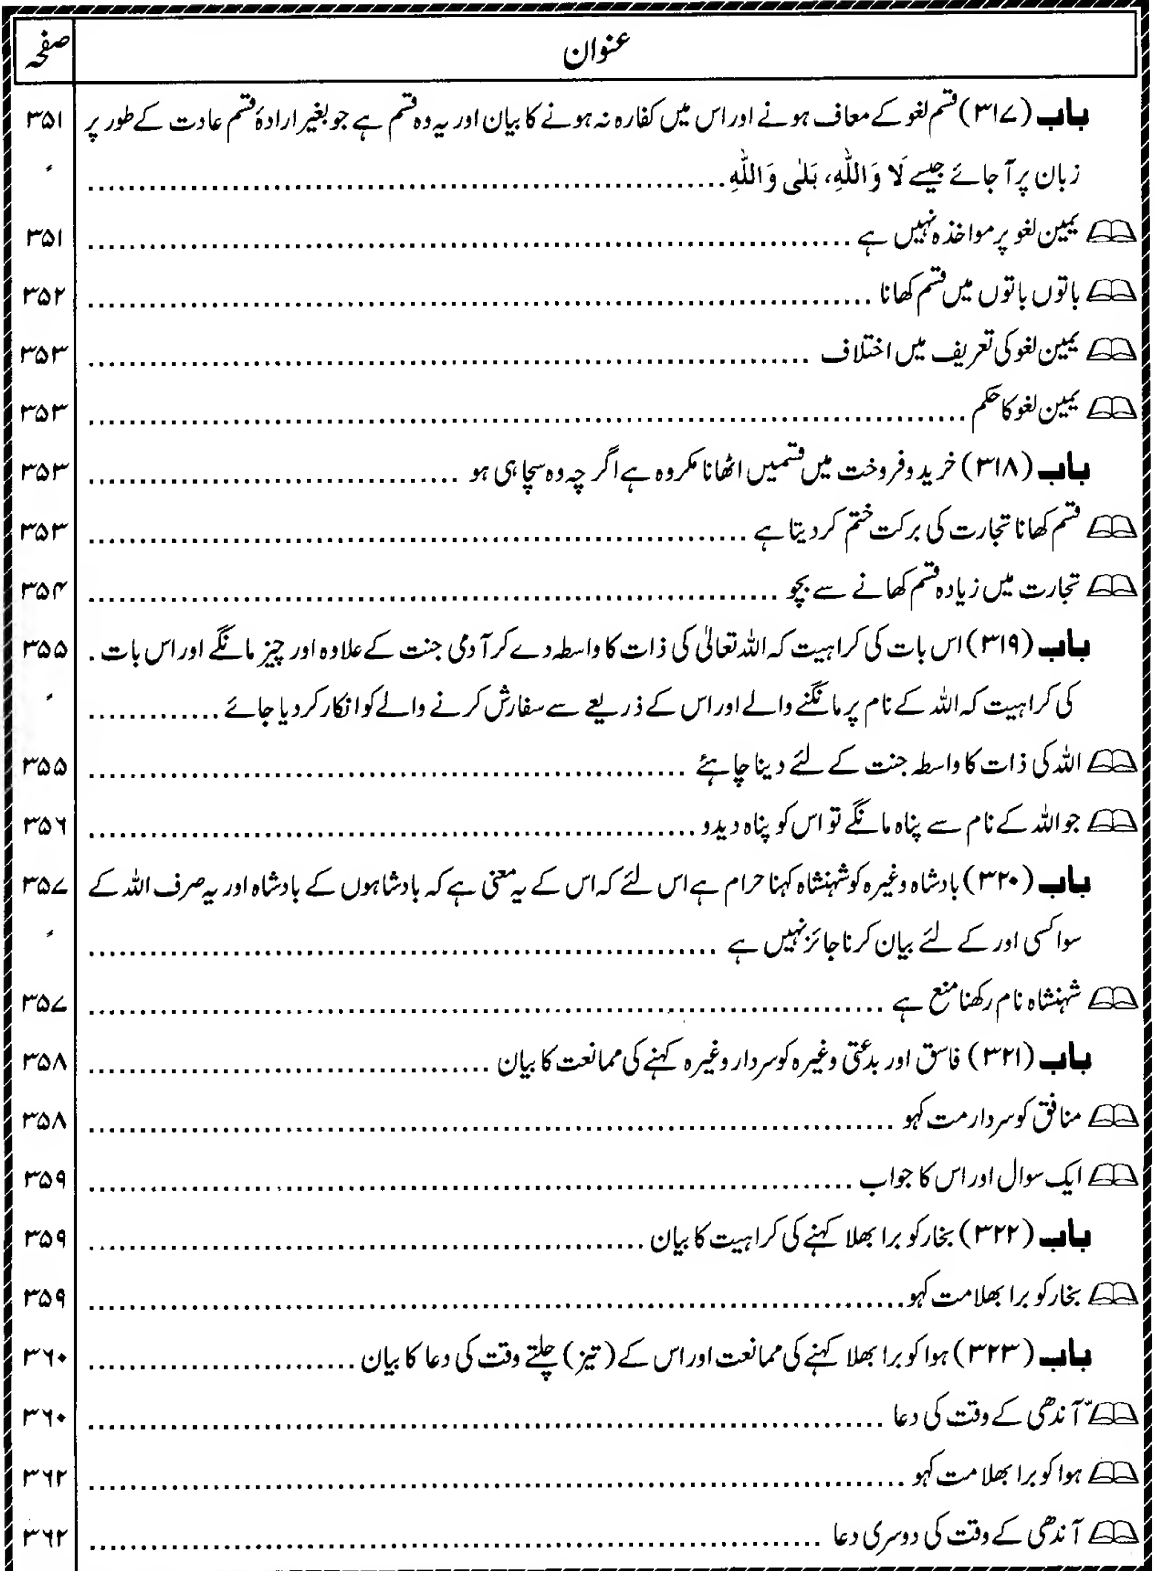 عنوان صفحہ
باب (۳۱۷) قسم لغو کے معاف ہونے اور اس میں کفارہ نہ ہونے کا بیان اور یہ وہ قسم ہے جو بغیر ارادۂ قسم عادت کے طور پر ۳۵۱
زبان پر آ جائے جیسے لَا وَاللّٰہِ، بَلٰی وَاللّٰہِ
یمین لغو پر مواخذہ نہیں ہے ۳۵۱
باتوں باتوں میں قسم کھانا ۳۵۲
یمین لغو کی تعریف میں اختلاف ۳۵۳
یمین لغو کا حکم ۳۵۳
باب (۳۱۸) خرید و فروخت میں قسمیں اٹھانا مکروہ ہے اگر چہ وہ سچا ہی ہو ۳۵۳
قسم کھانا تجارت کی برکت ختم کر دیتا ہے ۳۵۳
تجارت میں زیادہ قسم کھانے سے بچو ۳۵۴
باب (۳۱۹) اس بات کی کراہیت کہ اللہ تعالیٰ کی ذات کا واسطہ دے کر آدمی جنت کے علاوہ اور چیز مانگے اور اس بات . ۳۵۵
کی کراہیت کہ اللہ کے نام پر مانگنے والے اور اس کے ذریعے سے سفارش کرنے والے کو انکار کر دیا جائے
اللہ کی ذات کا واسطہ جنت کے لئے دینا چاہئے ۳۵۵
جو اللہ کے نام سے پناہ مانگے تو اس کو پناہ دیدو ۳۵۶
باب (۳۲۰) بادشاہ وغیرہ کو شہنشاہ کہنا حرام ہے اس لئے کہ اس کے یہ معنی ہے کہ بادشاہوں کے بادشاہ اور یہ صرف اللہ کے ۳۵۷
سوا کسی اور کے لئے بیان کرنا جائز نہیں ہے
شہنشاہ نام رکھنا منع ہے ۳۵۷
باب (۳۲۱) فاسق اور بدعتی وغیرہ کو سردار وغیرہ کہنے کی ممانعت کا بیان ۳۵۸
منافق کو سردار مت کہو ۳۵۸
ایک سوال اور اس کا جواب ۳۵۹
باب (۳۲۲) بخار کو برا بھلا کہنے کی کراہیت کا بیان ۳۵۹
بخار کو برا بھلا مت کہو ۳۵۹
باب (۳۲۳) ہوا کو برا بھلا کہنے کی ممانعت اور اس کے (تیز) چلتے وقت کی دعا کا بیان ۳۶۰
آندھی کے وقت کی دعا ۳۶۰
ہوا کو برا بھلا مت کہو ۳۶۲
آندھی کے وقت کی دوسری دعا ۳۶۲